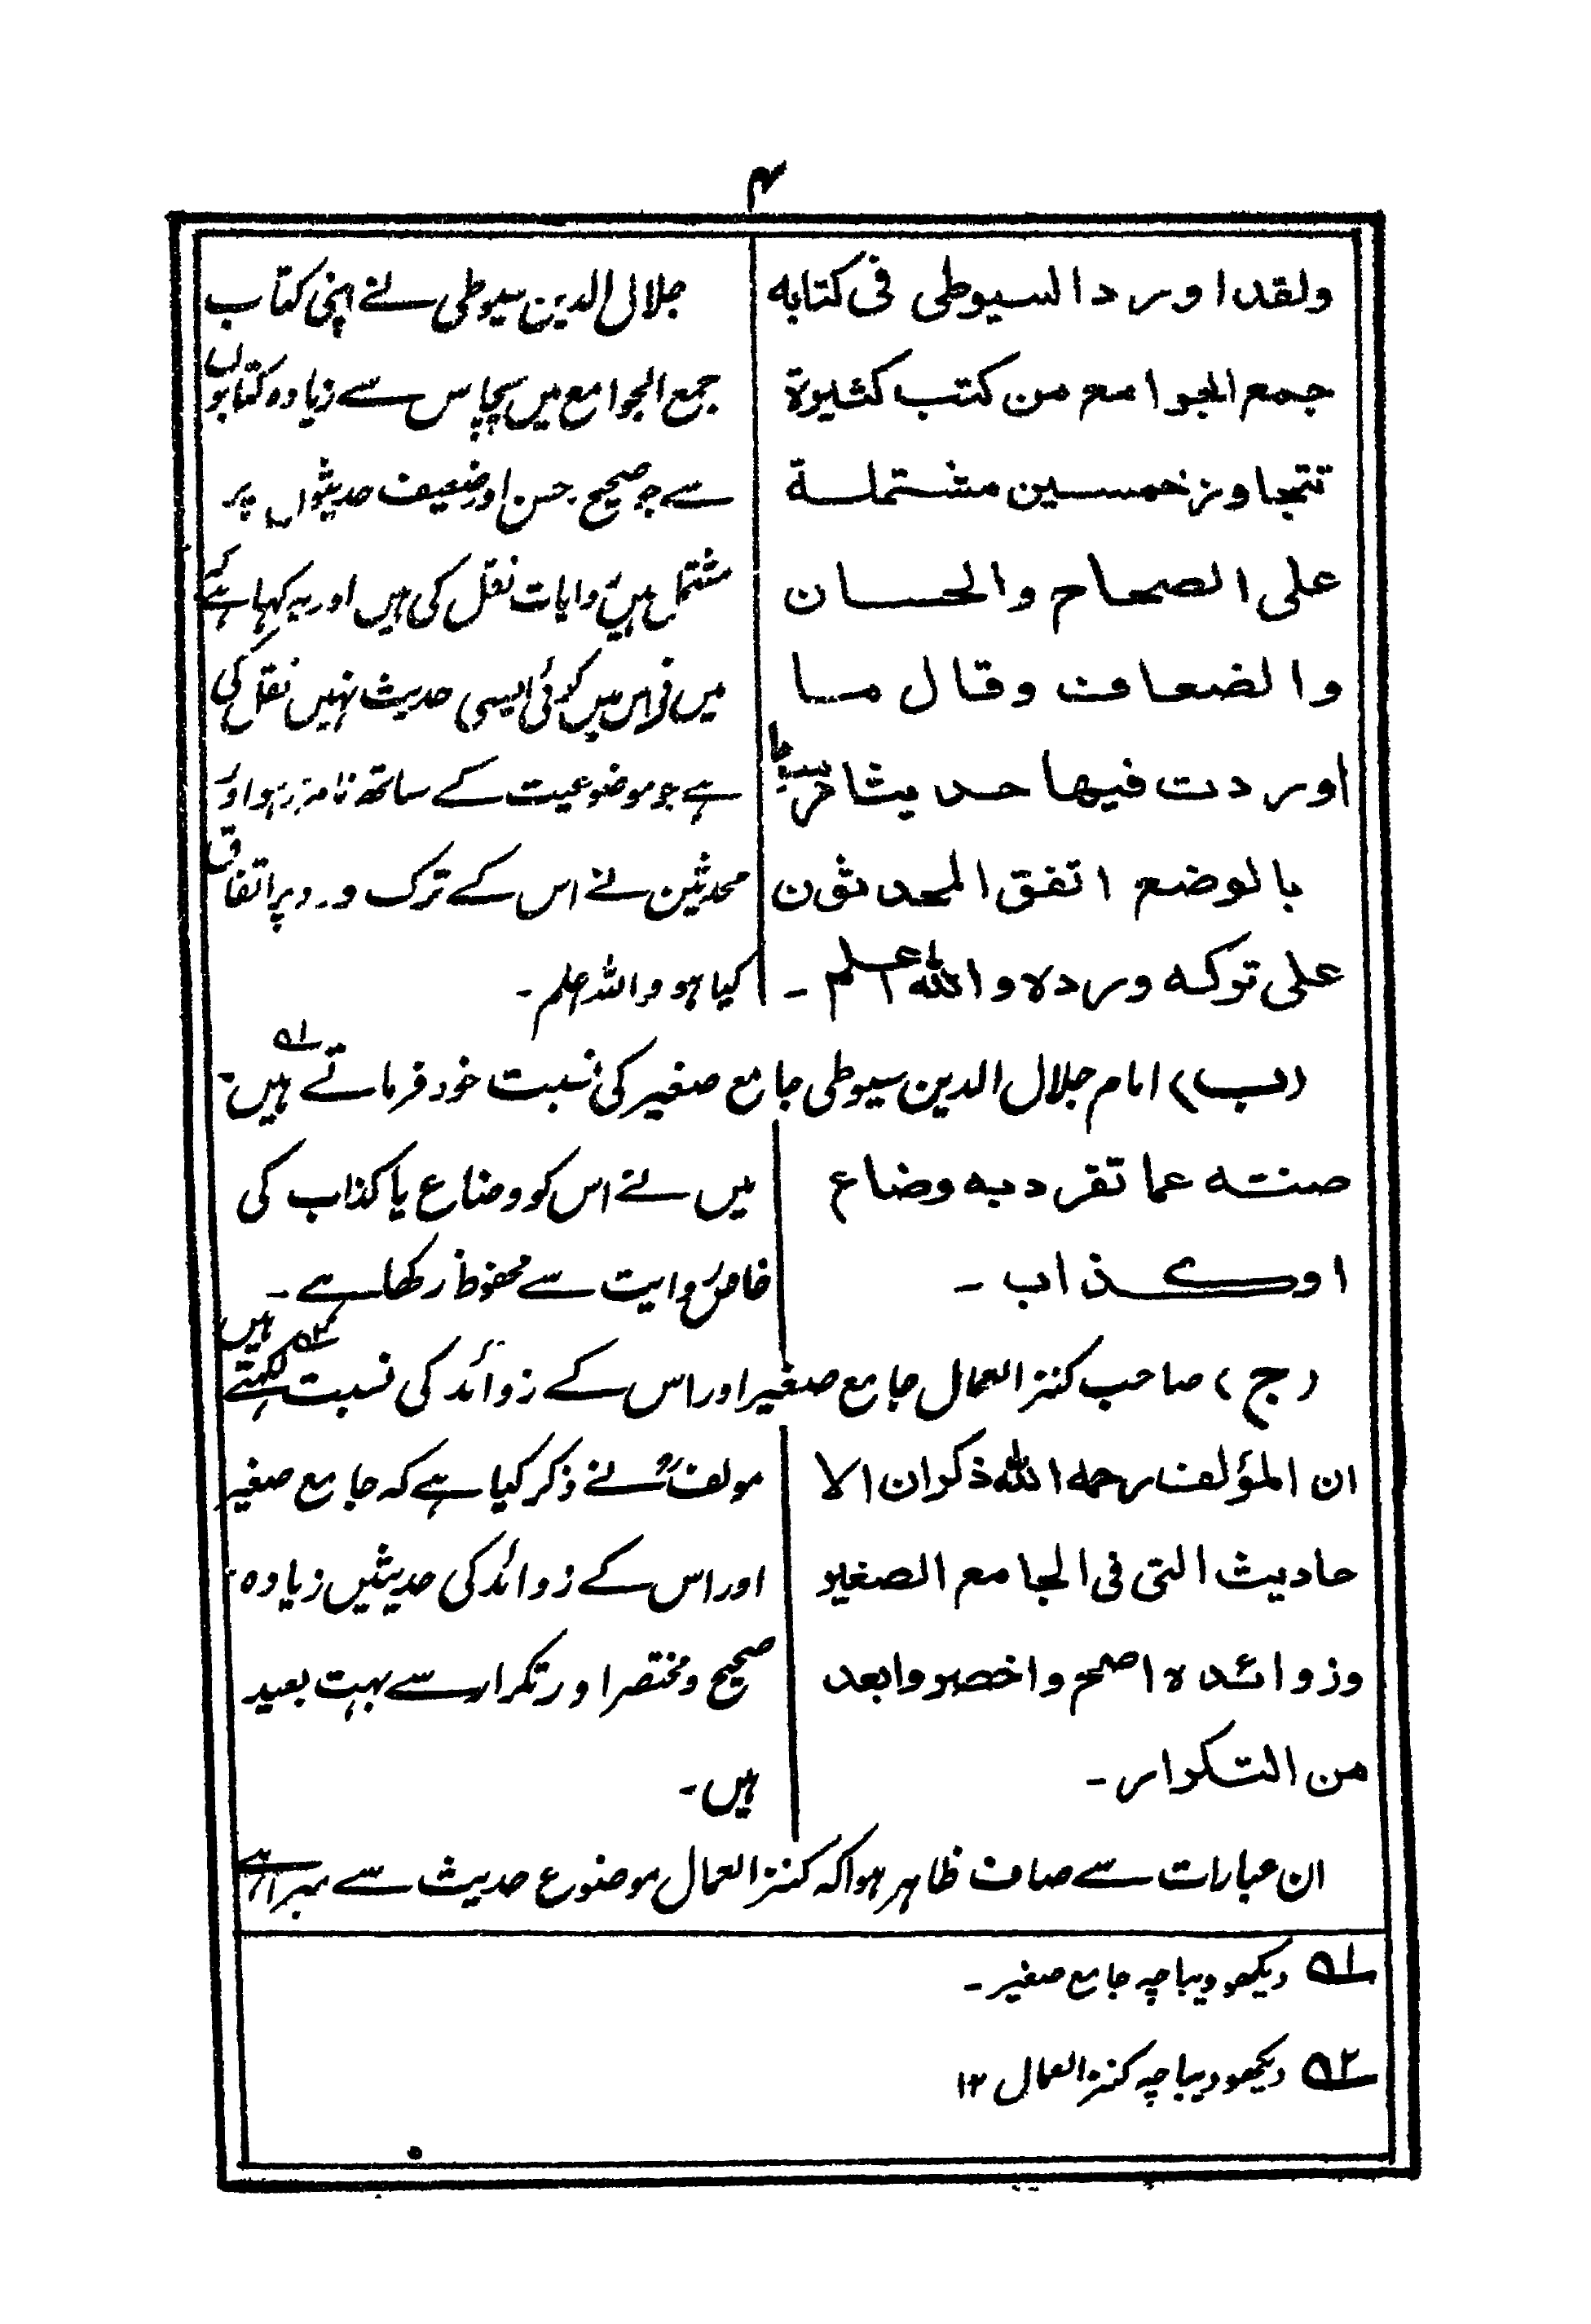 ۴
ولقد اورد السیوطی فی کتابه
جمع الجوامع من کتب کثیرة
تتجاوز خمسین مشتملة
علی الصحاح والحسان
والضعاف وقال ما
اوردت فیها حدیثا
بالوضع اتفق المحدثون
علی ترکه ورده والله اعلم ۔
جلال الدین سیوطی نے اپنی کتاب
جمع الجوامع میں پچاس سے زیادہ کتابوں
سے جو صحیح، حسن اور ضعیف حدیثوں پر
مشتمل ہیں روایات نقل کی ہیں اور یہ کہا ہے کہ
میں نے اس میں کوئی ایسی حدیث نہیں نقل کی
ہے جو موضوعیت کے ساتھ نامزد ہو اور
محدثین نے اس کے ترک و رد پر اتفاق
کیا ہو واللہ اعلم ۔
(ب) امام جلال الدین سیوطی جامع صغیر کی نسبت خود فرماتے ہیں ۱؎
صنته عما تفرد به وضاع
او کذاب ۔
میں نے اس کو وضاع یا کذاب کی
خاص روایت سے محفوظ رکھا ہے ۔
(ج) صاحب کنز العمال جامع صغیر اور اس کے زوائد کی نسبت لکھتے ہیں ۲؎
ان المؤلف رحمه الله ذکر ان الا
حادیث التی فی الجامع الصغیر
وزوائده اصح واخصر وابعد
من التکرار ۔
مولفؒ نے ذکر کیا ہے کہ جامع صغیر
اور اس کے زوائد کی حدیثیں زیادہ
صحیح و مختصر اور تکرار سے بہت بعید
ہیں ۔
ان عبارات سے صاف ظاہر ہوا کہ کنز العمال موضوع حدیث سے مبرا ہے
۱؎ دیکھو دیباچہ جامع صغیر ۔
۲؎ دیکھو دیباچہ کنز العمال ۱۲